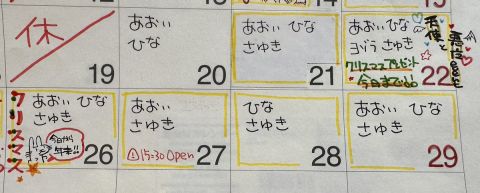 14
15
休
19
あおい
ひな
20
あおい ひな
さゆき
21
あおい ひな
さゆき
クリスマスプレゼント
今日まで
22
クリスマス
あおい ひな
さゆき
今日から
26
あおい
さゆき
①15:30 Open
27
ひな
さゆき
28
あおい ひな
さゆき
29